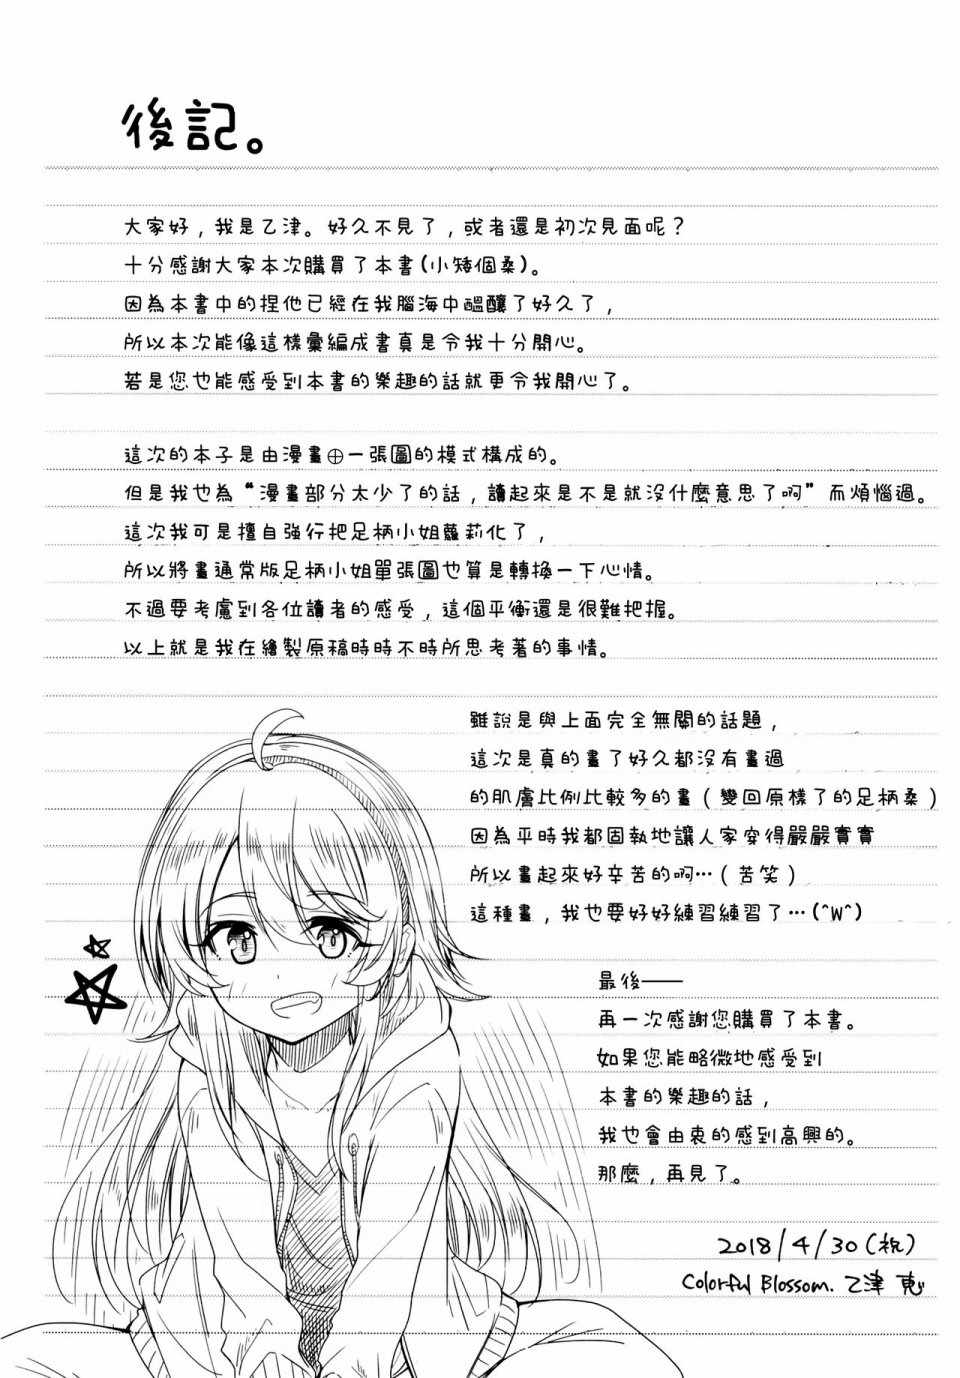 後記。
大家好，我是乙津。好久不見了，或者還是初次見面呢？
十分感謝大家本次購買了本書(小矮個桑)。
因為本書中的捏他已經在我腦海中醞釀了好久了，
所以本次能像這樣彙編成書真是令我十分開心。
若是您也能感受到本書的樂趣的話就更令我開心了。
這次的本子是由漫畫⊕一張圖的模式構成的。
但是我也為“漫畫部分太少了的話，讀起來是不是就沒什麼意思了啊”而煩惱過。
這次我可是擅自強行把足柄小姐蘿莉化了，
所以將畫通常版足柄小姐單張圖也算是轉換一下心情。
不過要考慮到各位讀者的感受，這個平衡還是很難把握。
以上就是我在繪製原稿時時不時所思考著的事情。
雖說是與上面完全無關的話題，
這次是真的畫了好久都沒有畫過
的肌膚比例比較多的畫（變回原樣了的足柄桑）
因為平時我都固執地讓人家穿得嚴嚴實實
所以畫起來好辛苦的啊…（苦笑）
這種畫，我也要好好練習練習了…(^W^)
最後——
再一次感謝您購買了本書。
如果您能略微地感受到
本書的樂趣的話，
我也會由衷的感到高興的。
那麼，再見了。
2018/4/30(祝)
Colorful Blossom. 乙津 恵